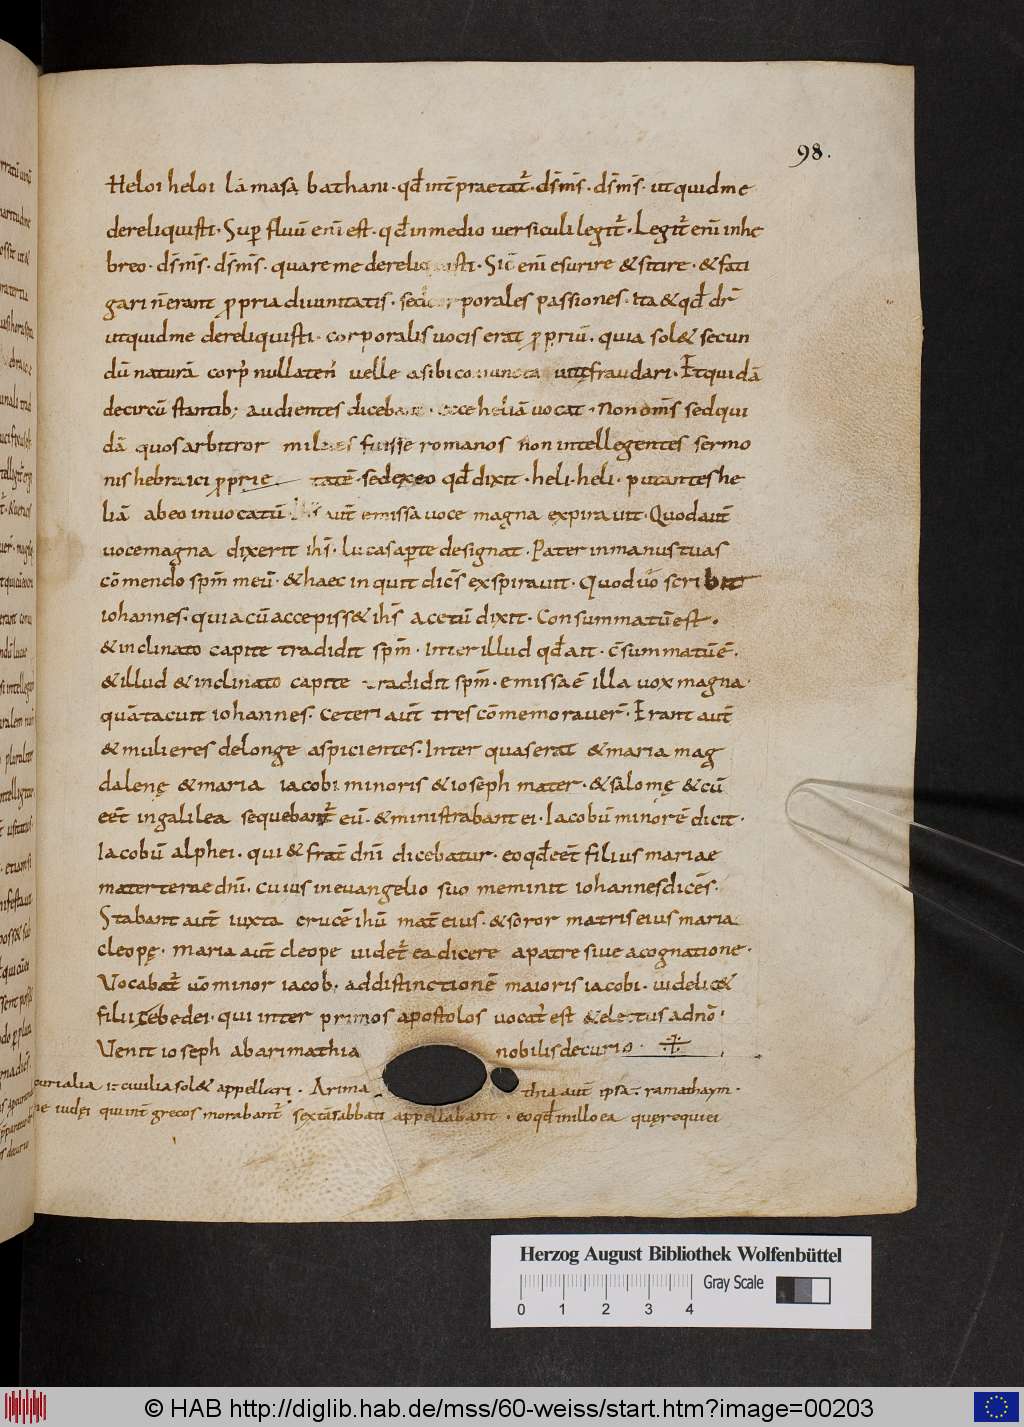 98.
Heloi heloi lamasa bathani · qđ inťpraetat̄ · ds̄ ms̄ · ds̄ ms̄ · ut quid me
dereliquisti · Sup̱ fluū enī est · qđ in medio versiculi legit̄ · Legit̄ enī in he
breo · ds̄ ms̄ · ds̄ ms̄ · quare me dereliquisti · Sic̄ enī esurire & sitire · & fati
gari n̄ erant ꝓpria divinitatis · sed corporales passiones · ita & qđ dr̄
ut quid me dereliquisti · corporalis vocis erat ꝓpriū · quia sol& secun
dū naturā corp' nullaten' velle a sibi coniuncta vita fraudari · Et quidā
de circū stantib; audientes diceban · ecce heliā vocat · Non om̄s sed qui
dā quos arbitror milites fuisse romanos non intellegentes sermo
nis hebraici ꝓprie tatē · sed ex eo qđ dixit · heli · heli · putantes he
liā ab eo invocatū · ihs̄ aut̄ emissa voce magna expiravit · Quod aut̄
voce magna dixerit ihs̄ · lucas aperte designat · Pater in manus tuas
cōmendo spm̄ meū · & haec inquit dicēs exspiravit · Quod uo scribit
iohannes · quia cū accepiss& ihs̄ acetū dixit · Consummatū est ·
& inclinato capite tradidit spm̄ · inter illud qđ ait · c̄summatū ē ·
& illud & inclinato capite tradidit spm̄ · emissa ē illa vox magna ·
quā tacuit iohannes · ceteri aut̄ tres cōmemoraver̄ · Erant aut̄
& mulieres de longe aspicientes · Inter quas erat & maria mag
dalenę & maria iacobi minoris & ioseph mater · & salomę & cū
eēt in galilea sequebant̄ eū · & ministrabant ei · Iacobū minorē dicit ·
Iacobū alphei · qui & frat̄ dnī dicebatur · eo qđ eēt filius mariae
materterae dnī · cuius in evangelio suo meminit iohannes dicēs ·
Stabant aut̄ iuxta crucē ihū mat̄ eius · & soror matris eius maria
cleopę · Maria aut̄ cleope videt̄ ea dicere a patre sive a cognatione ·
Vocabat̄ uō minor iacob; ad distinctionē maioris iacobi · videlic&
filii zebedei · qui inter primos apostolos vocat' est & electus a dnō ·
Venit ioseph ab arimathia nobilis decurio ·
curialia & civilia sol& appellari · Arima thia aut̄ ipsa ÷ ramathaym ·
iudęi qui int̄ grecos morabant̄ sextā sabbati appellabant · eo qđ in illo ea quę requiei
Herzog August Bibliothek Wolfenbüttel
Gray Scale
0 1 2 3 4
© HAB http://diglib.hab.de/mss/60-weiss/start.htm?image=00203